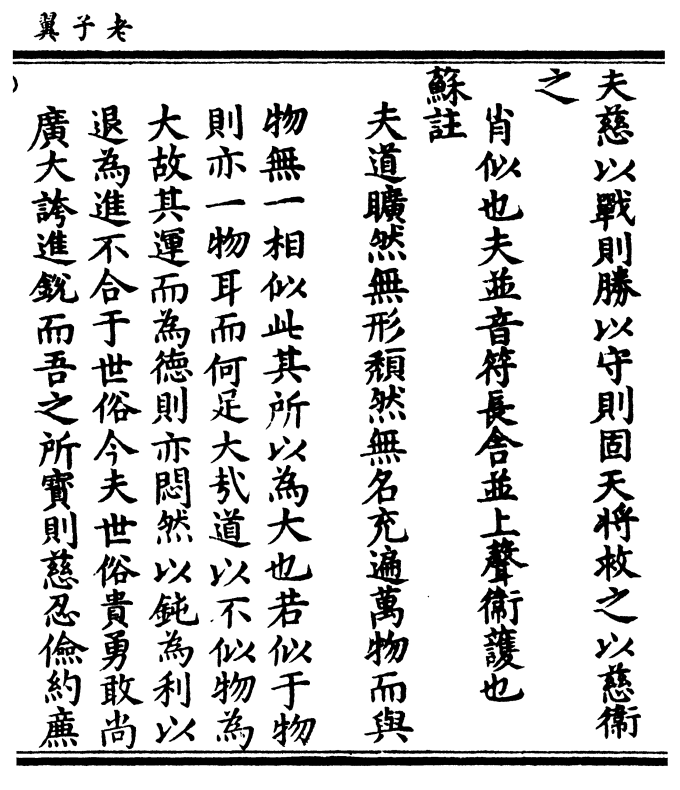 老子翼
夫慈以戰則勝以守則固天將救之以慈衞
之
肖似也夫並音符長舍並上聲衞護也
蘇註
夫道曠然無形頹然無名充遍萬物而與
物無一相似此其所以為大也若似于物
則亦一物耳而何足大㢤道以不似物為
大故其運而為徳則亦悶然以鈍為利以
退為進不合于世俗今夫世俗貴勇敢尚
廣大誇進銳而吾之所寳則慈忍儉約廉